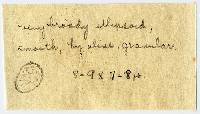 very broadly ellipsoid,
smooth, hyaline, granular.
7-9 x 7-8µ.